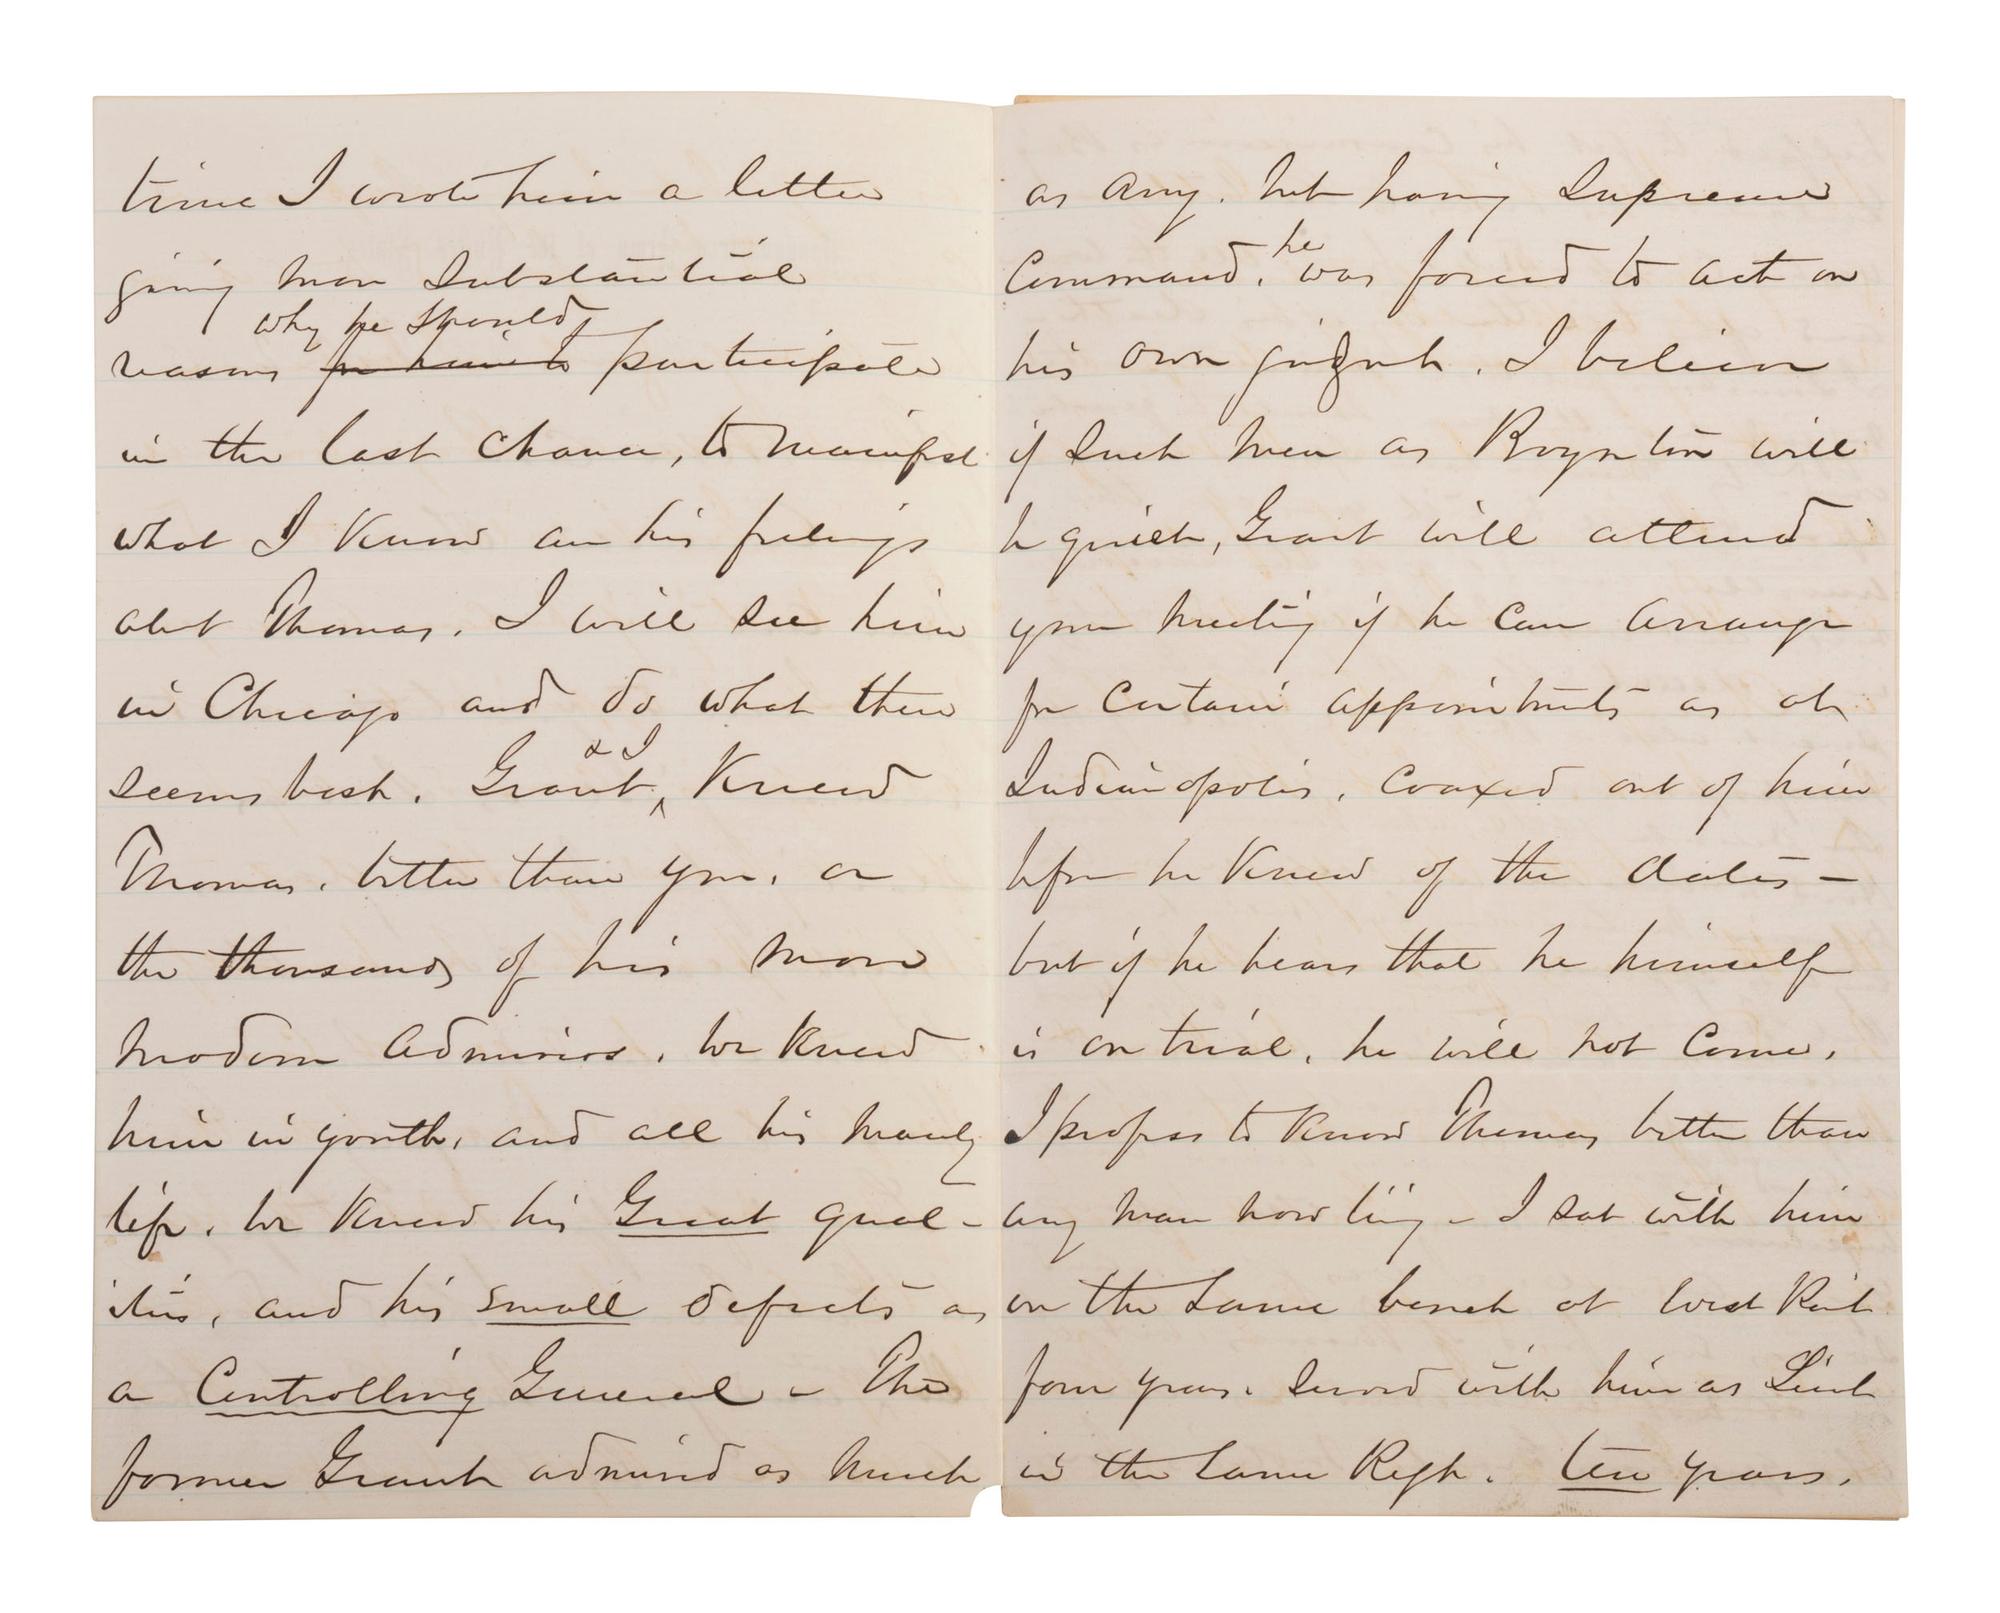 time I wrote him a letter
giving more Substantial
why he should
reasons for him to participate
in the last chance, to manifest
what I Know are his feelings
abt Thomas. I will see him
in Chicago and do what then
seems best. Grant & I Knew
Thomas, better than you, or
the thousands of his more
modern admirers, we Knew
him in youth, and all his manly
life, we Knew his Great qual-
ities, and his small defects as
a Controlling General - The
former Grant admired as much
as any, but having Supreme
Command, he was forced to act on
his own judgmt. I believe
if Such men as Boynton will
be quiet, Grant will attend
your meeting if he can arrange
for certain appointmts as at
Indianapolis, coaxed out of him
before he Knew of the dates -
but if he hears that he himself
is on trial, he will not come.
I profess to Know Thomas better than
any man now livig - I sat with him
on the same bench at West Point
four years, served with him as Lieut
in the same Regt. ten years.